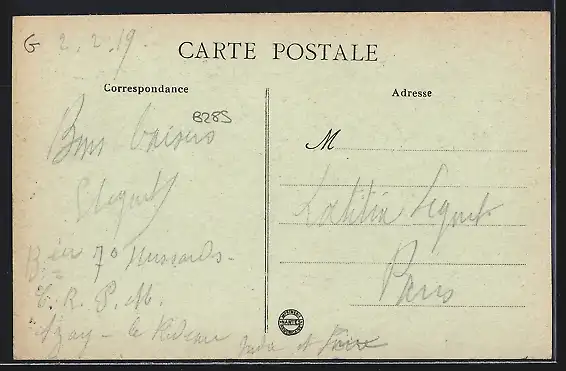 G 2.2.19.
CARTE POSTALE
Correspondance
Adresse
B285
Bons baisers
M
Laetitia Lequet
Paris
7e Hussards
C. R. P. M.
Azay-le Rideau Indre et Loire
NANTES